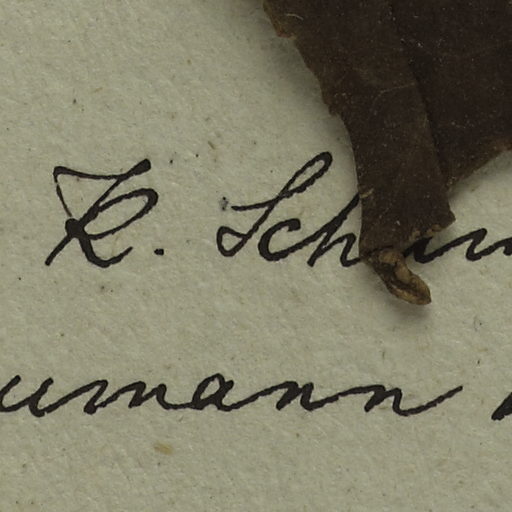 K. Schum
umann